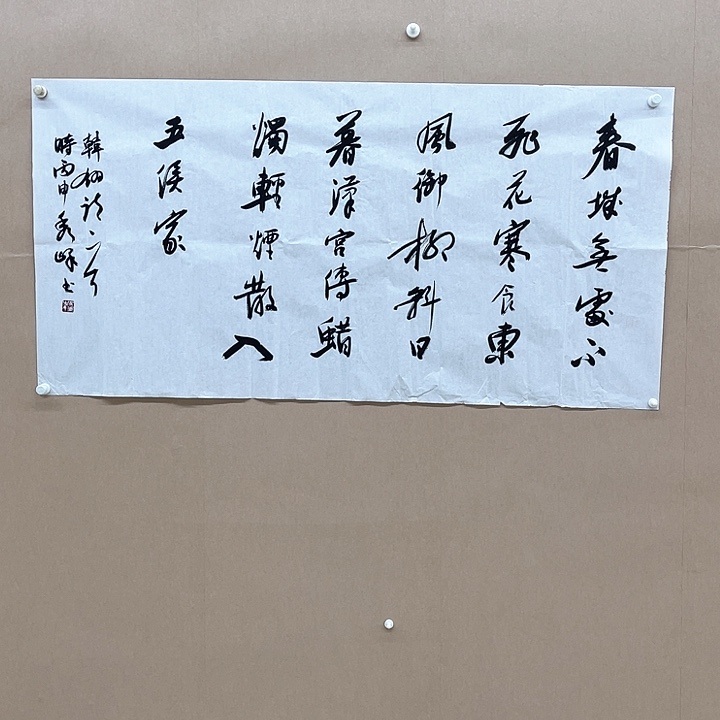 春城無處不
飛花寒食東
風御柳斜日
暮漢宮傳蜡
燭輕煙散入
五侯家
韓翃詩一首
時丙申秀峰書